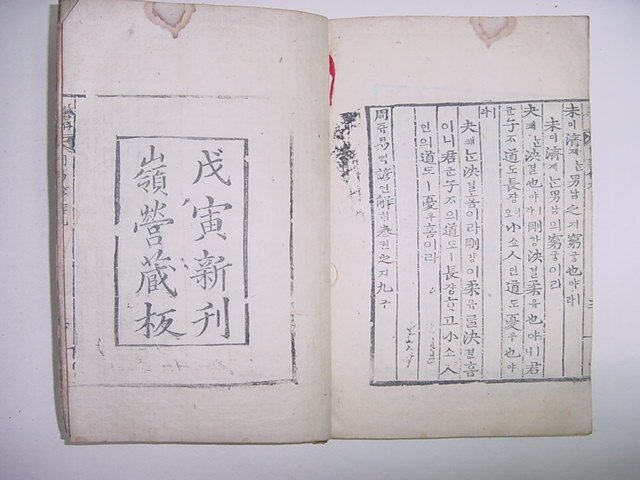 未미濟졔는男남之지窮궁也야ㅣ라
未미濟졔는男남의窮궁이라
夬쾌는決결也야ㅣ라剛강決결柔유也야ㅣ니君
군子ᄌᆞ道도長댱이오小쇼人인道도憂우也야
ㅣ라
夬쾌는決결홈이라剛강이柔유를決결홈
이니君군子ᄌᆞ의道도ㅣ長댱ᄒᆞ고小쇼人
인의道도ㅣ憂우홈이라
周쥬易역諺언解ᄒᆡ卷권之지九구
戊寅新刊
嶺營藏板